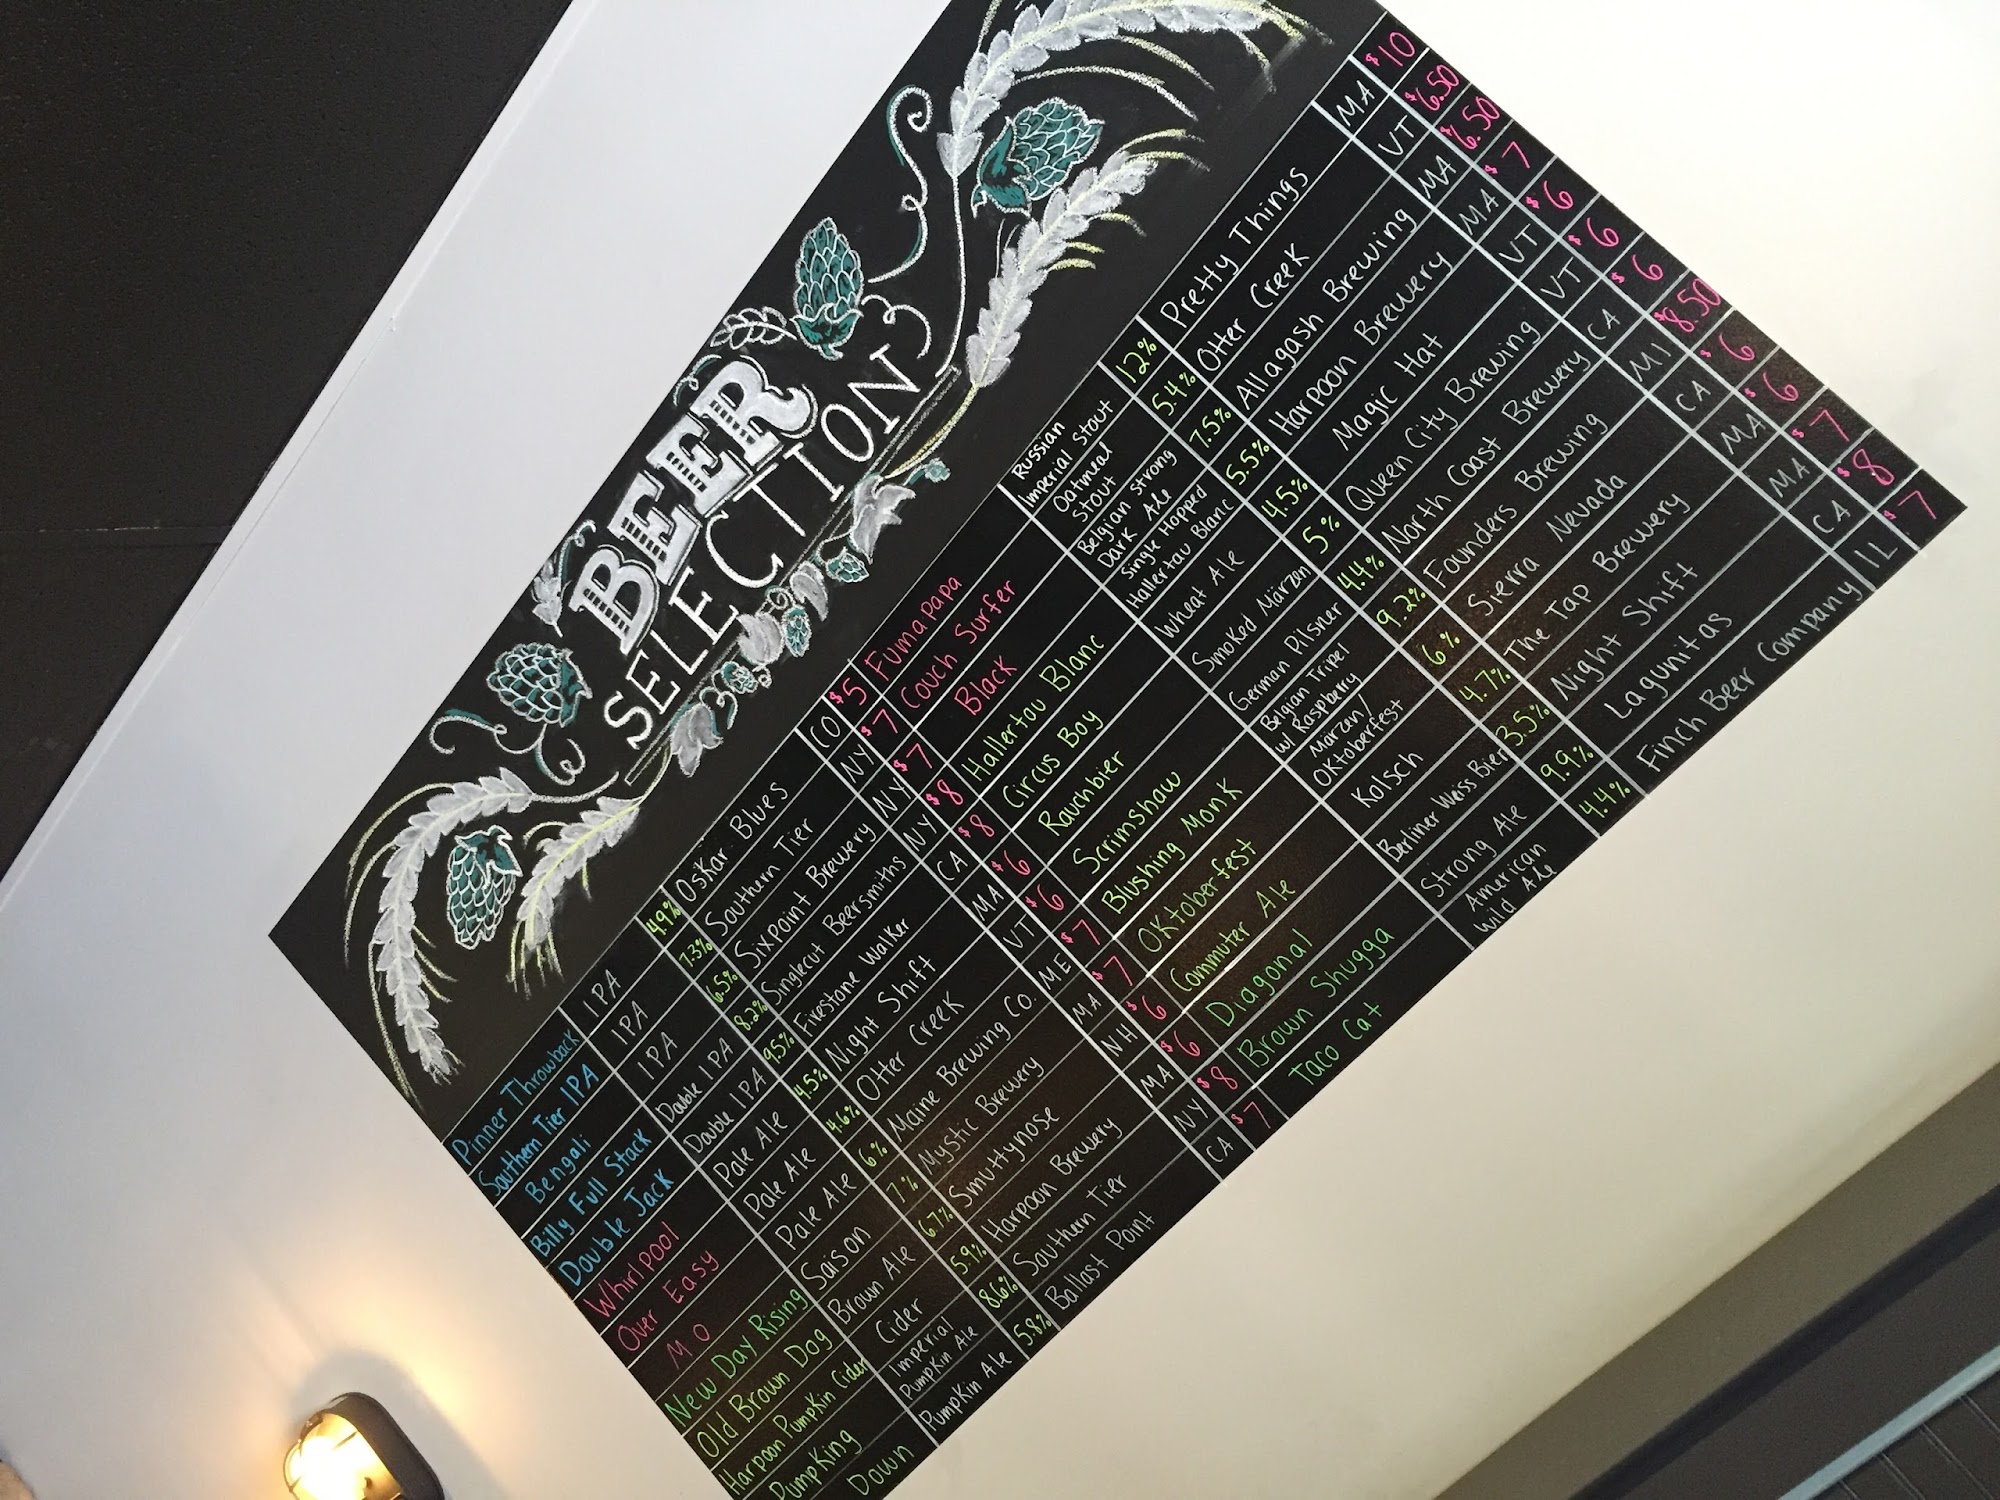 BEER
SELECTION
Pinner Throwback IPA 4.9% Oskar Blues CO $5
Southern Tier IPA IPA 7.3% Southern Tier NY $7
Bengali IPA 6.5% Sixpoint Brewery NY $7
Billy Full Stack Double IPA 8.2% Singlecut Beersmiths NY $8
Double Jack Double IPA 9.5% Firestone Walker CA $8
Whirlpool Pale Ale 4.5% Night Shift MA $6
Over Easy Pale Ale 4.6% Otter Creek VT $6
MO Pale Ale 6% Maine Brewing Co. ME $7
New Day Rising Saison 7% Mystic Brewery MA $7
Old Brown Dog Brown Ale 6.7% Smuttynose NH $6
Harpoon Pumpkin Cider Cider 5.9% Harpoon Brewery MA $6
Pumpking Imperial Pumpkin Ale 8.6% Southern Tier NY $8
Down Pumpkin Ale 5.8% Ballast Point CA $7
Fumapapa Russian Imperial Stout 12% Pretty Things MA $10
Couch Surfer Oatmeal Stout 5.4% Otter Creek VT $6.50
Black Belgian Strong Dark Ale 7.5% Allagash Brewing MA $6.50
Hallertau Blanc Single Hopped Hallertau Blanc 5.5% Harpoon Brewery MA $7
Circus Boy Wheat Ale 4.5% Magic Hat VT $6
Rauchbier Smoked Märzen 5% Queen City Brewing VT $6
Scrimshaw German Pilsner 4.4% North Coast Brewery CA $6
Blushing Monk Belgian Tripel w/ Raspberry 9.2% Founders Brewing MI $8.50
Oktoberfest Marzan/ Oktoberfest 6% Sierra Nevada CA $6
Commuter Ale Kolsch 4.7% The Tap Brewery MA $6
Diagonal Berliner Weiss Bier 3.5% Night Shift MA $7
Brown Shugga Strong Ale 9.9% Lagunitas CA $8
Taco Cat American Wild Ale 4.4% Finch Beer Company IL $7